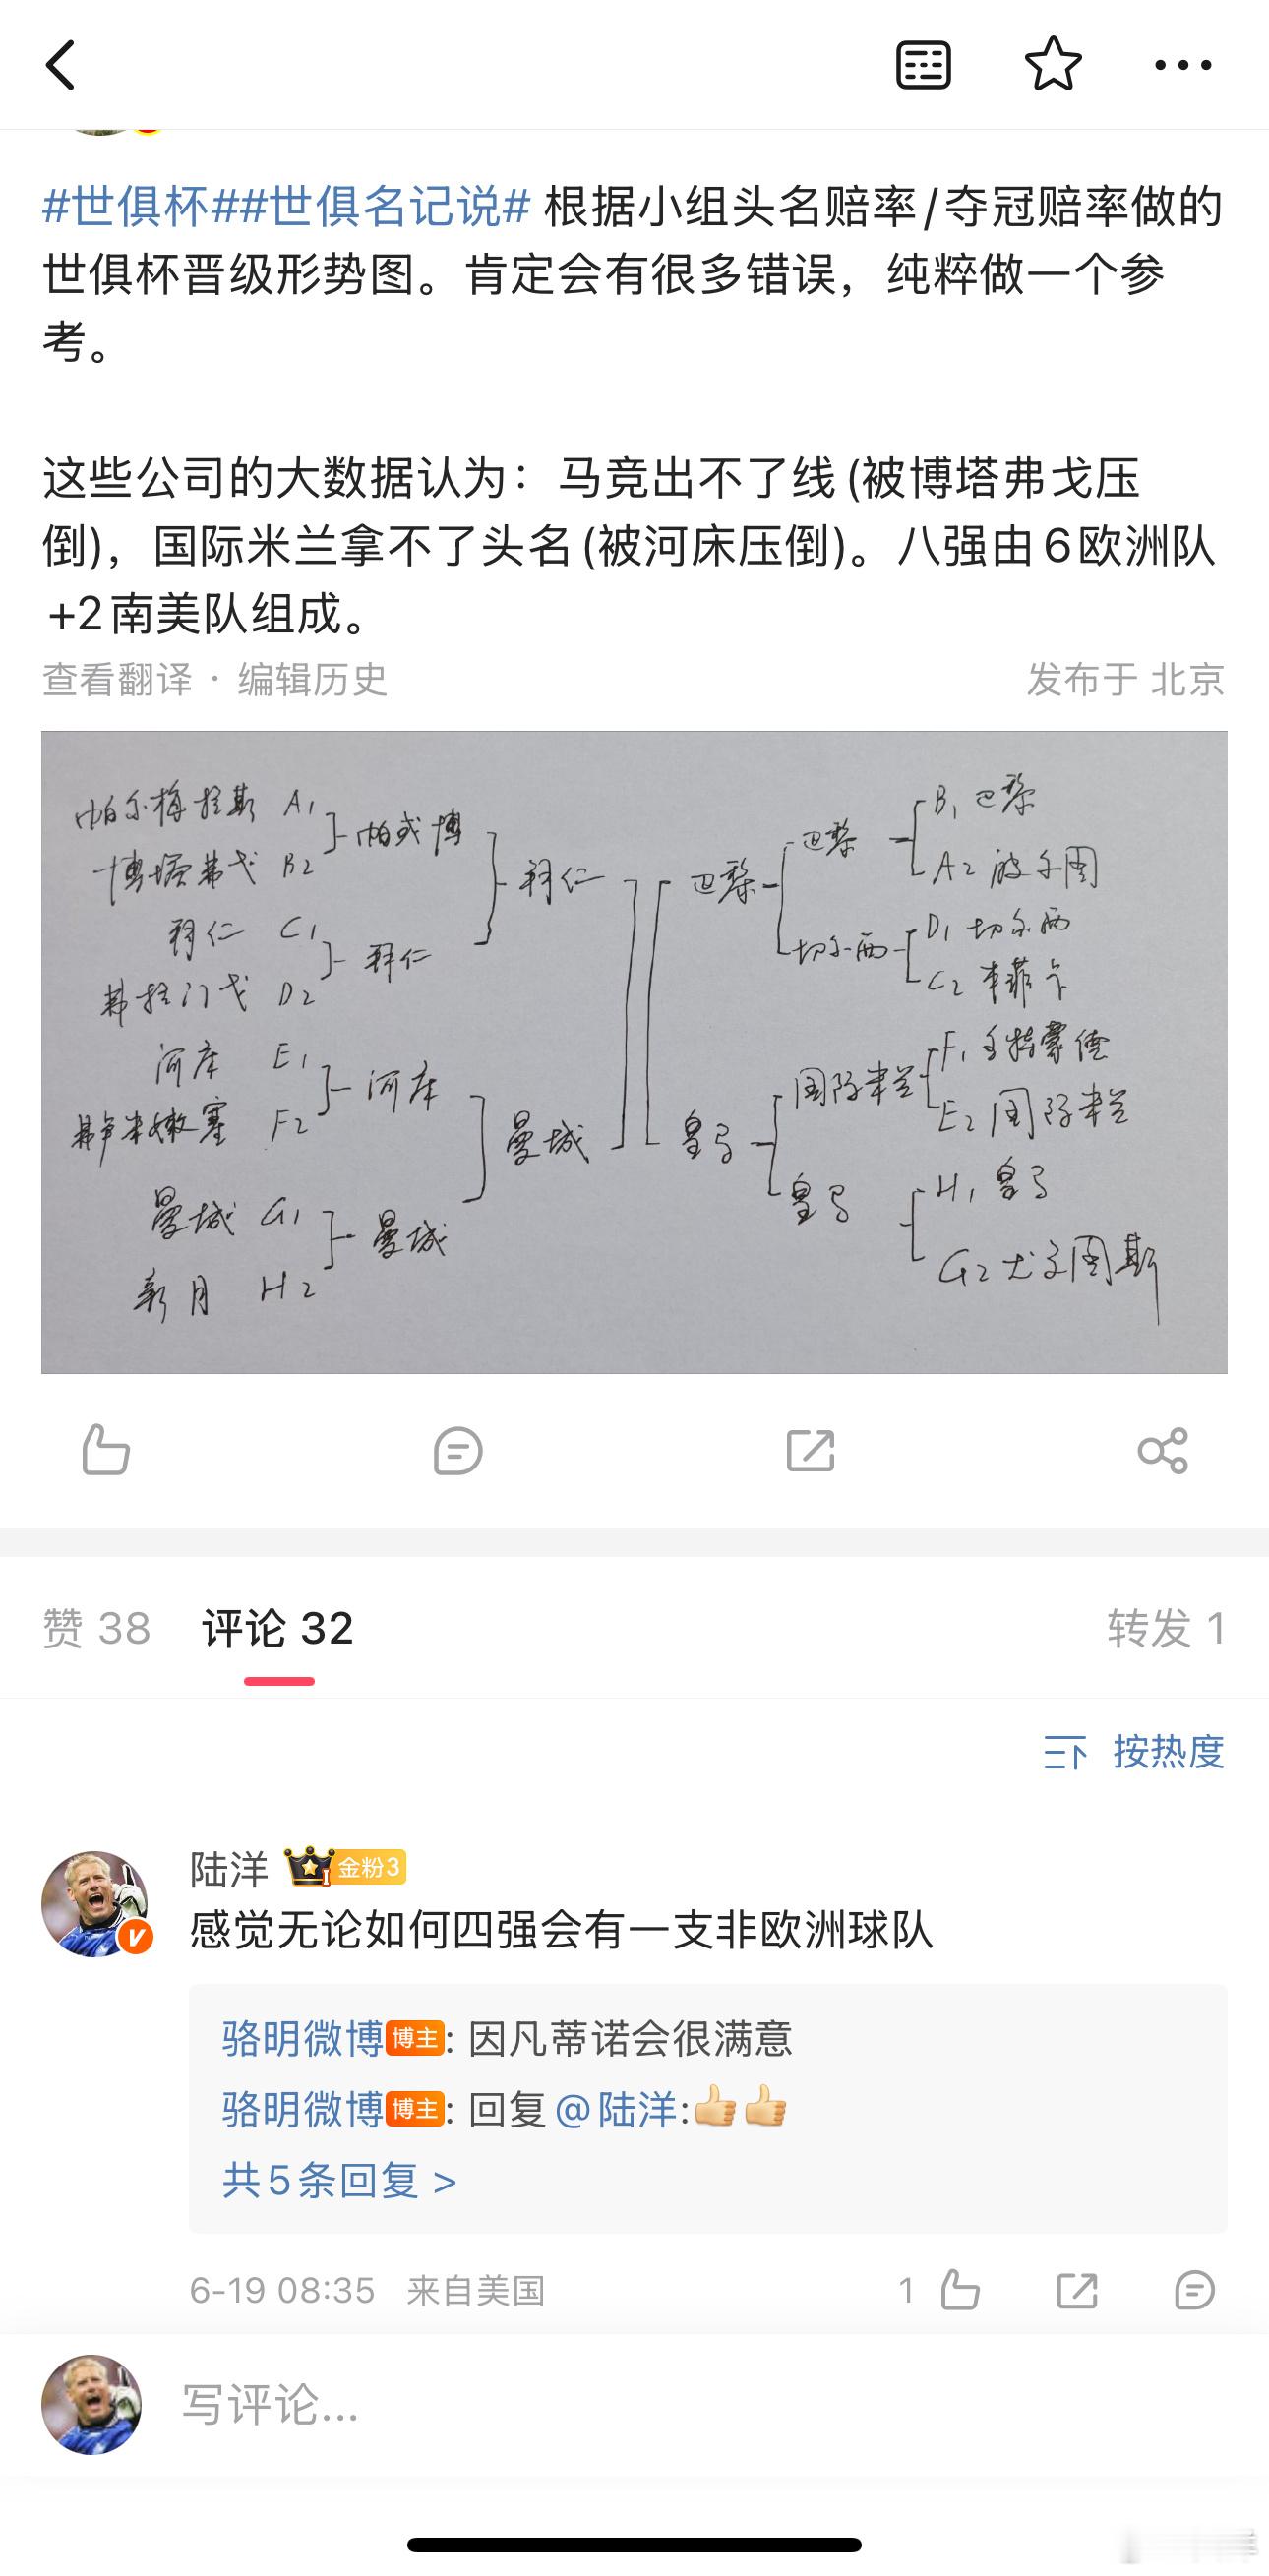 #世俱杯##世俱名记说# 根据小组头名赔率/夺冠赔率做的
世俱杯晋级形势图。肯定会有很多错误，纯粹做一个参
考。
这些公司的大数据认为：马竞出不了线(被博塔弗戈压
倒)，国际米兰拿不了头名(被河床压倒)。八强由6欧洲队
+2南美队组成。
查看翻译 · 编辑历史
发布于 北京
帕尔梅拉斯 A1
博塔弗戈 B2
帕或博
拜仁 C1
弗拉门戈 D2
拜仁
拜仁
河床 E1
弗卢米嫩塞 F2
河床
曼城 G1
新月 H2
曼城
曼城
巴黎
巴黎
B1 巴黎
A2 波尔图
切尔西
D1 切尔西
C2 本菲卡
皇马
国际米兰
F1 多特蒙德
E2 国际米兰
皇马
H1 皇马
G2 尤文图斯
赞 38
评论 32
转发 1
按热度
陆洋
金粉3
感觉无论如何四强会有一支非欧洲球队
骆明微博 博主: 因凡蒂诺会很满意
骆明微博 博主: 回复@陆洋:👍👍
共5条回复 >
6-19 08:35 来自美国
1
写评论...